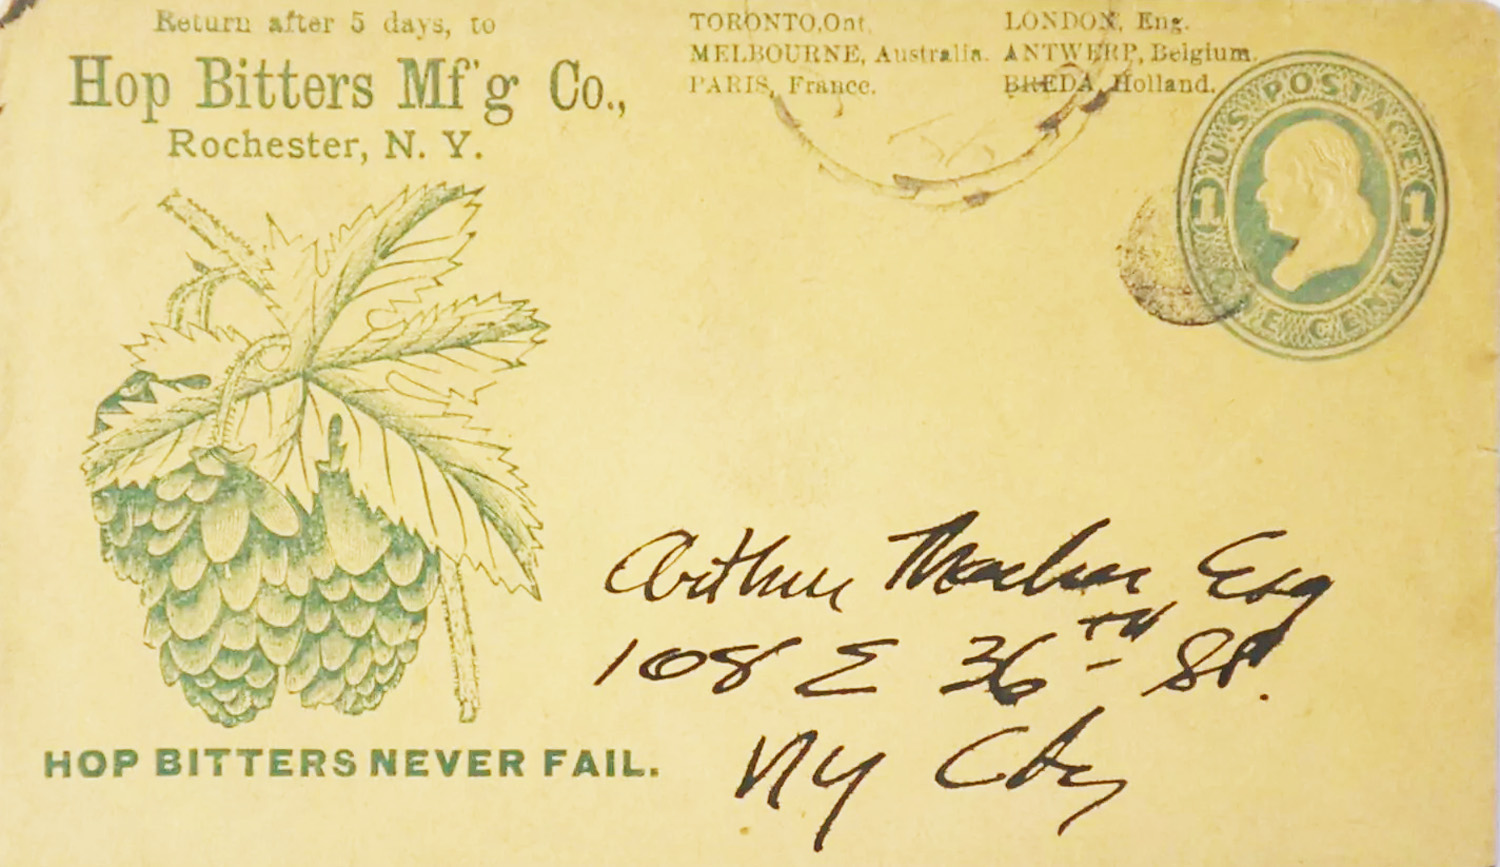 Return after 5 days, to
Hop Bitters Mf'g Co.,
Rochester, N. Y.
TORONTO, Ont.
MELBOURNE, Australia.
PARIS, France.
LONDON, Eng.
ANTWERP, Belgium.
BREDA, Holland.
U.S. POSTAGE
1 1
ONE CENT
HOP BITTERS NEVER FAIL.
Arthur Esq
108 E 36TH St.
NY City